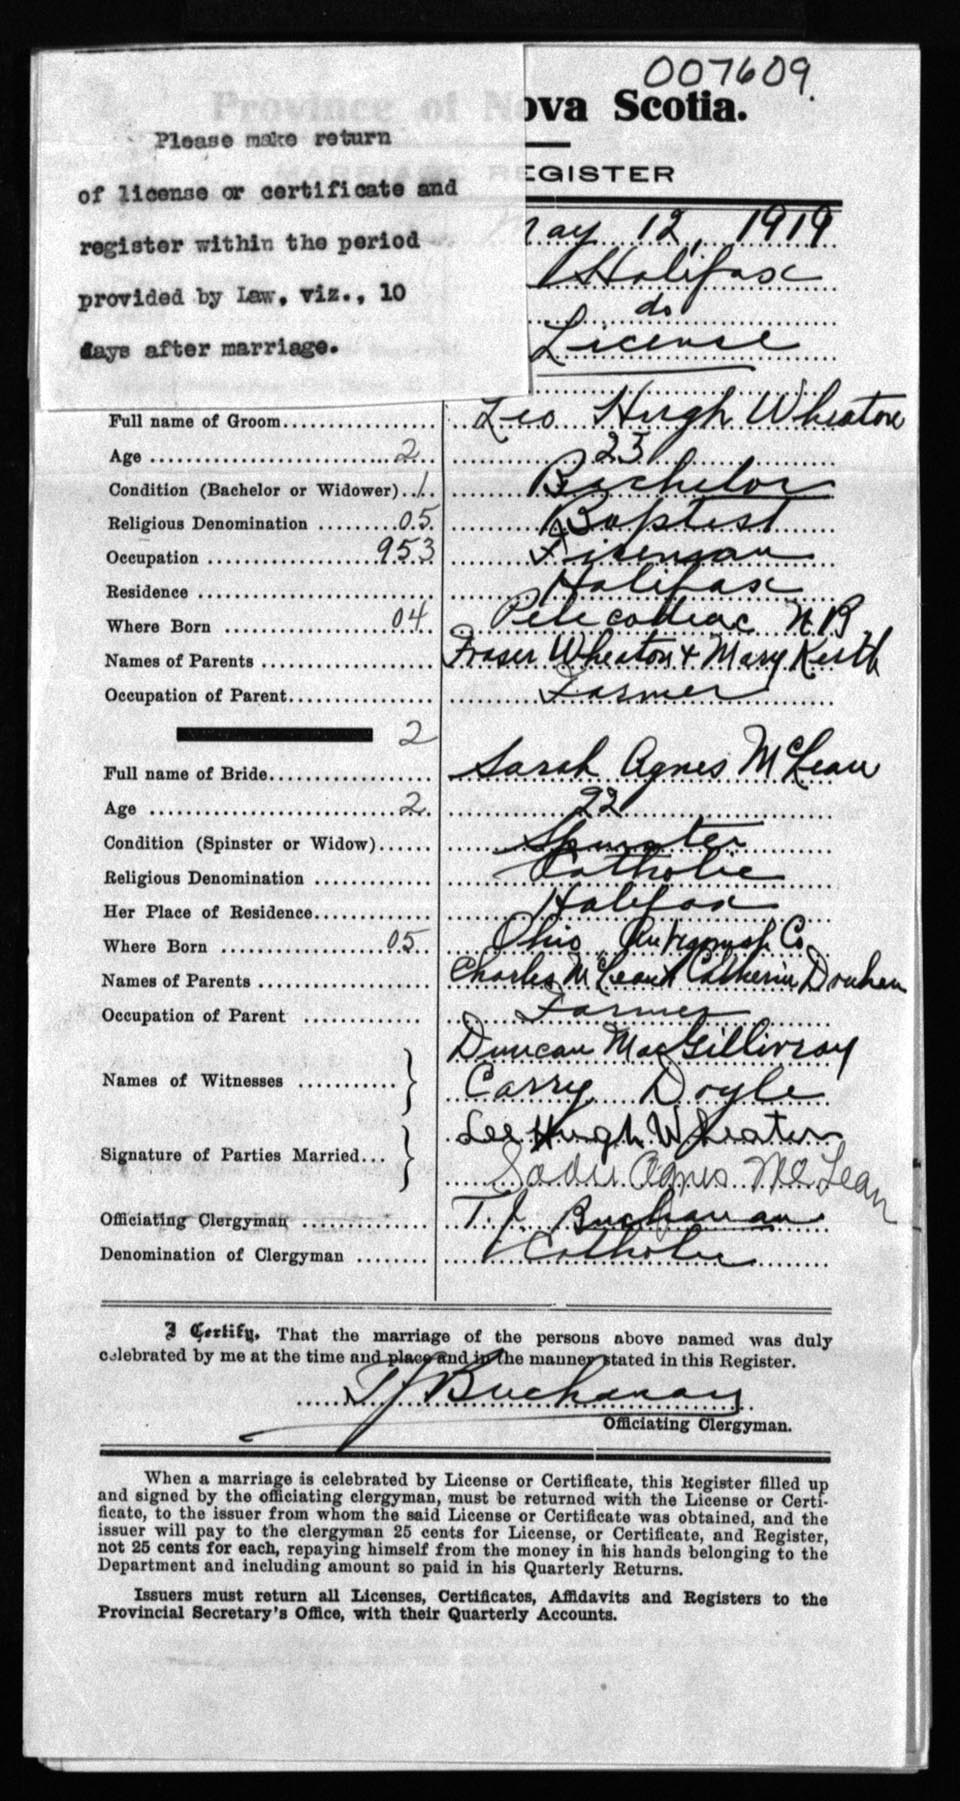 007609.
Province of Nova Scotia.
REGISTER
Please make return
of license or certificate and
register within the period
provided by Law, viz., 10
days after marriage.
May 12, 1919
Halifax
do
License
Full name of Groom Leo Hugh Wheaton
Age 2 23
Condition (Bachelor or Widower) 1 Bachelor
Religious Denomination 05 Baptist
Occupation 953 Fireman
Residence Halifax
Where Born 04 Petecodiac N B
Names of Parents Fraser Wheaton + Mary Keith
Occupation of Parent Farmer
2
Full name of Bride Sarah Agnes McLean
Age 2 22
Condition (Spinster or Widow) Spinster
Religious Denomination Catholic
Her Place of Residence Halifax
Where Born 05 Ohio Antigonish Co
Names of Parents Charles McLean + Catherine
Occupation of Parent Farmer
Duncan MacGillivray
Names of Witnesses
Carry Doyle
Leo Hugh Wheaton
Signature of Parties Married...
Sadie Agnes McLean
Officiating Clergyman T. J. Buchanan
Denomination of Clergyman Catholic
I Certify, That the marriage of the persons above named was duly
celebrated by me at the time and place and in the manner stated in this Register.
T J Buchanan
Officiating Clergyman.
When a marriage is celebrated by License or Certificate, this Register filled up
and signed by the officiating clergyman, must be returned with the License or Certi-
ficate, to the issuer from whom the said License or Certificate was obtained, and the
issuer will pay to the clergyman 25 cents for License, or Certificate, and Register,
not 25 cents for each, repaying himself from the money in his hands belonging to the
Department and including amount so paid in his Quarterly Returns.
Issuers must return all Licenses, Certificates, Affidavits and Registers to the
Provincial Secretary's Office, with their Quarterly Accounts.